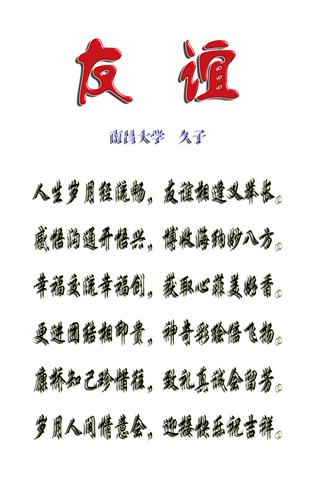 友谊
南昌大学 久予
人生岁月经流畅，友谊相逢义举长。
感悟沟通开悟兴，博收海纳妙八方。
幸福交流幸福创，获取心菲美好香。
更进团结相印贵，神奇彩绘悟飞扬。
康桥知己珍惜往，致礼真诚会留芳。
岁月人间情意会，迎接快乐祝吉祥。